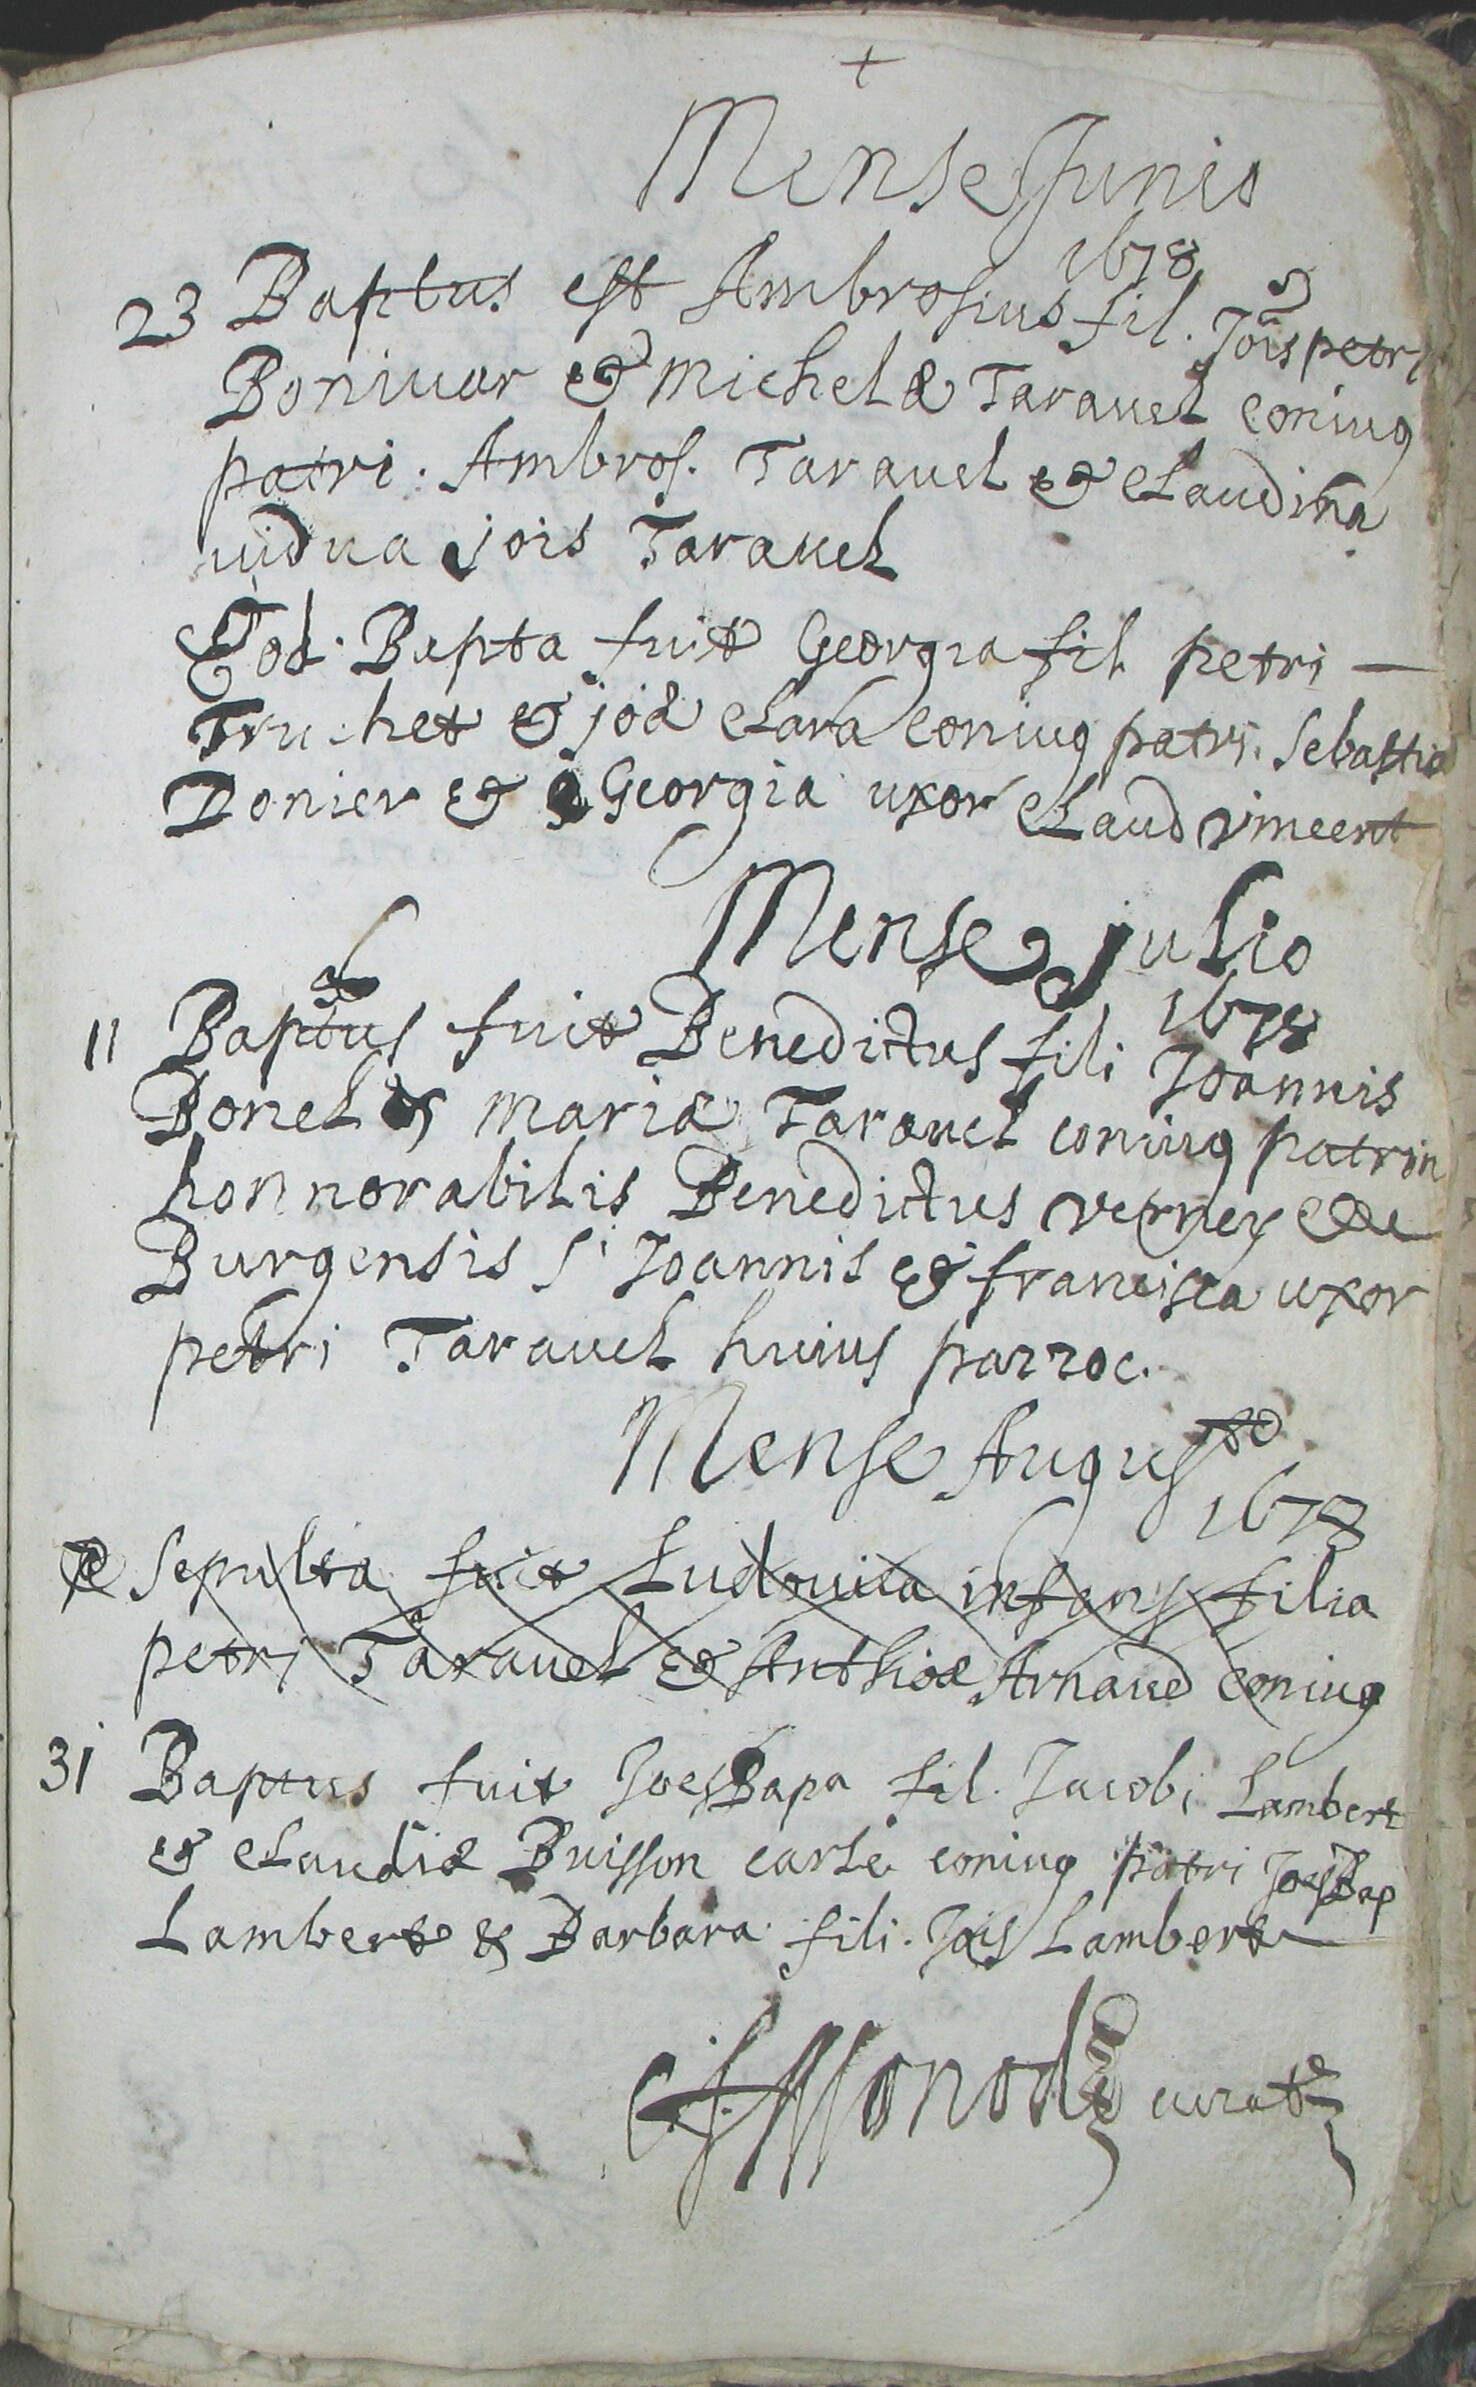 +
Mense Junio
1678
23 Baptus est Ambrosius fil. Jois petri
Boniuar & Michelæ Tarauel coniug
patri. Ambros. Tarauel & Claudina
uidua jois Tarauel
Eod. Bapta fuit Georgia fil petri —
Truchet & joæ Clara coniug patri. Sebastia
Donier & Georgia uxor Claud vincent
Mense julio
1678
11 Baptus fuit Benedictus fili Joannis
Bonel & mariæ Tarauel coniug patrin
honnorabilis Benedictus verney
Burgensis Sti Joannis & francisca uxor
petri Tarauel huius parroc.
Mense Augusto
1678
Sepulta fuit Ludouica infans filia
petri Tarauel & Anthioæ Arnaud coniug
31 Baptus fuit Joes Bapa fil. Jacobi Lambert
& Claudiæ Buisson carle coniug patri Joes Bap
Lambert & Barbara fili. Jois Lambert
Monod curat